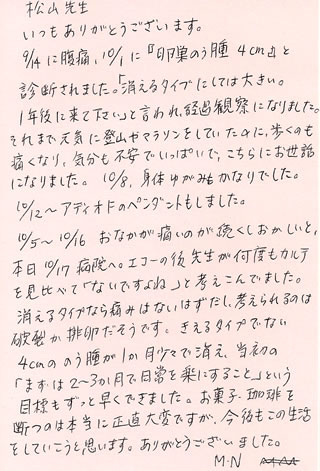 松山先生
いつもありがとうございます。
9/14に腹痛、10/1に『卵巣のう腫4cm』と
診断されました。「消えるタイプにしては大きい。
1年後に来て下さい」と言われ、経過観察になりました。
それまで元気に登山やマラソンをしていたのに、歩くのも
痛くなり、気分も不安でいっぱいで、こちらにお世話
になりました。 10/8、身体ゆがみもかなりでした。
10/12〜アディオドのペンダントもしました。
10/5〜10/16 おなかが痛いのが続くしおかしいと、
本日10/17病院へ。エコーの後、先生が何度もカルテ
を見比べて「ないですよね」と考えこんでました。
消えるタイプなら痛みはないはずだし、考えられるのは
破裂か排卵だそうです。きえるタイプでない
4cmののう腫が1か月少々で消え、当初の
「まずは2〜3か月で日常を楽にすること」という
目標もずっと早くできました。お菓子・珈琲を
断つのは本当に正直大変ですが、今後もこの生活
をしていこうと思います。ありがとうございました。
M・N